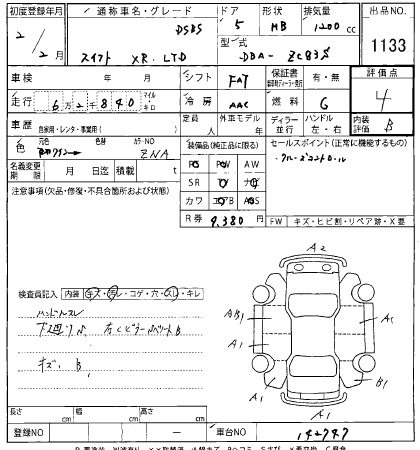 初度登録年月 通称車名・グレード ドア 形状 排気量 出品NO.
2/2月 スイフト XR.LTD DSBS 5 HB 1200cc 1133
型式 DBA-ZC83S
車検 年 月 シフト FAT 保証書 有・無 評価点
走行 6万2千840 マイル キロ 冷房 AAC 燃料 G 4
定員 人 外車モデル 年 ディラー 並行 ハンドル 左・右 内装評価 B
車歴 自家用・レンタ・事業用( )
色 元色 色替 カラーNO ZNA
名義変更期限 月 日迄 積載 t
装備品(純正品に限る)
PS PW AW
SR TV ナビ
カワ エアB ABS
R券 9,380円
セールスポイント(正常に機能するもの)
・クルーズコントロール
注意事項(欠品・修復・不具合箇所および状態)
FW キズ・ヒビ割・リペア跡・X要
検査員記入 内装 キズ・汚レ・コゲ・穴・スレ・キレ
ハンドルスレ
キズ、B
A2
AB1 A1
A1
A1 B1
A1
長さ cm 幅 cm 高さ cm
登録NO 車台NO 142747